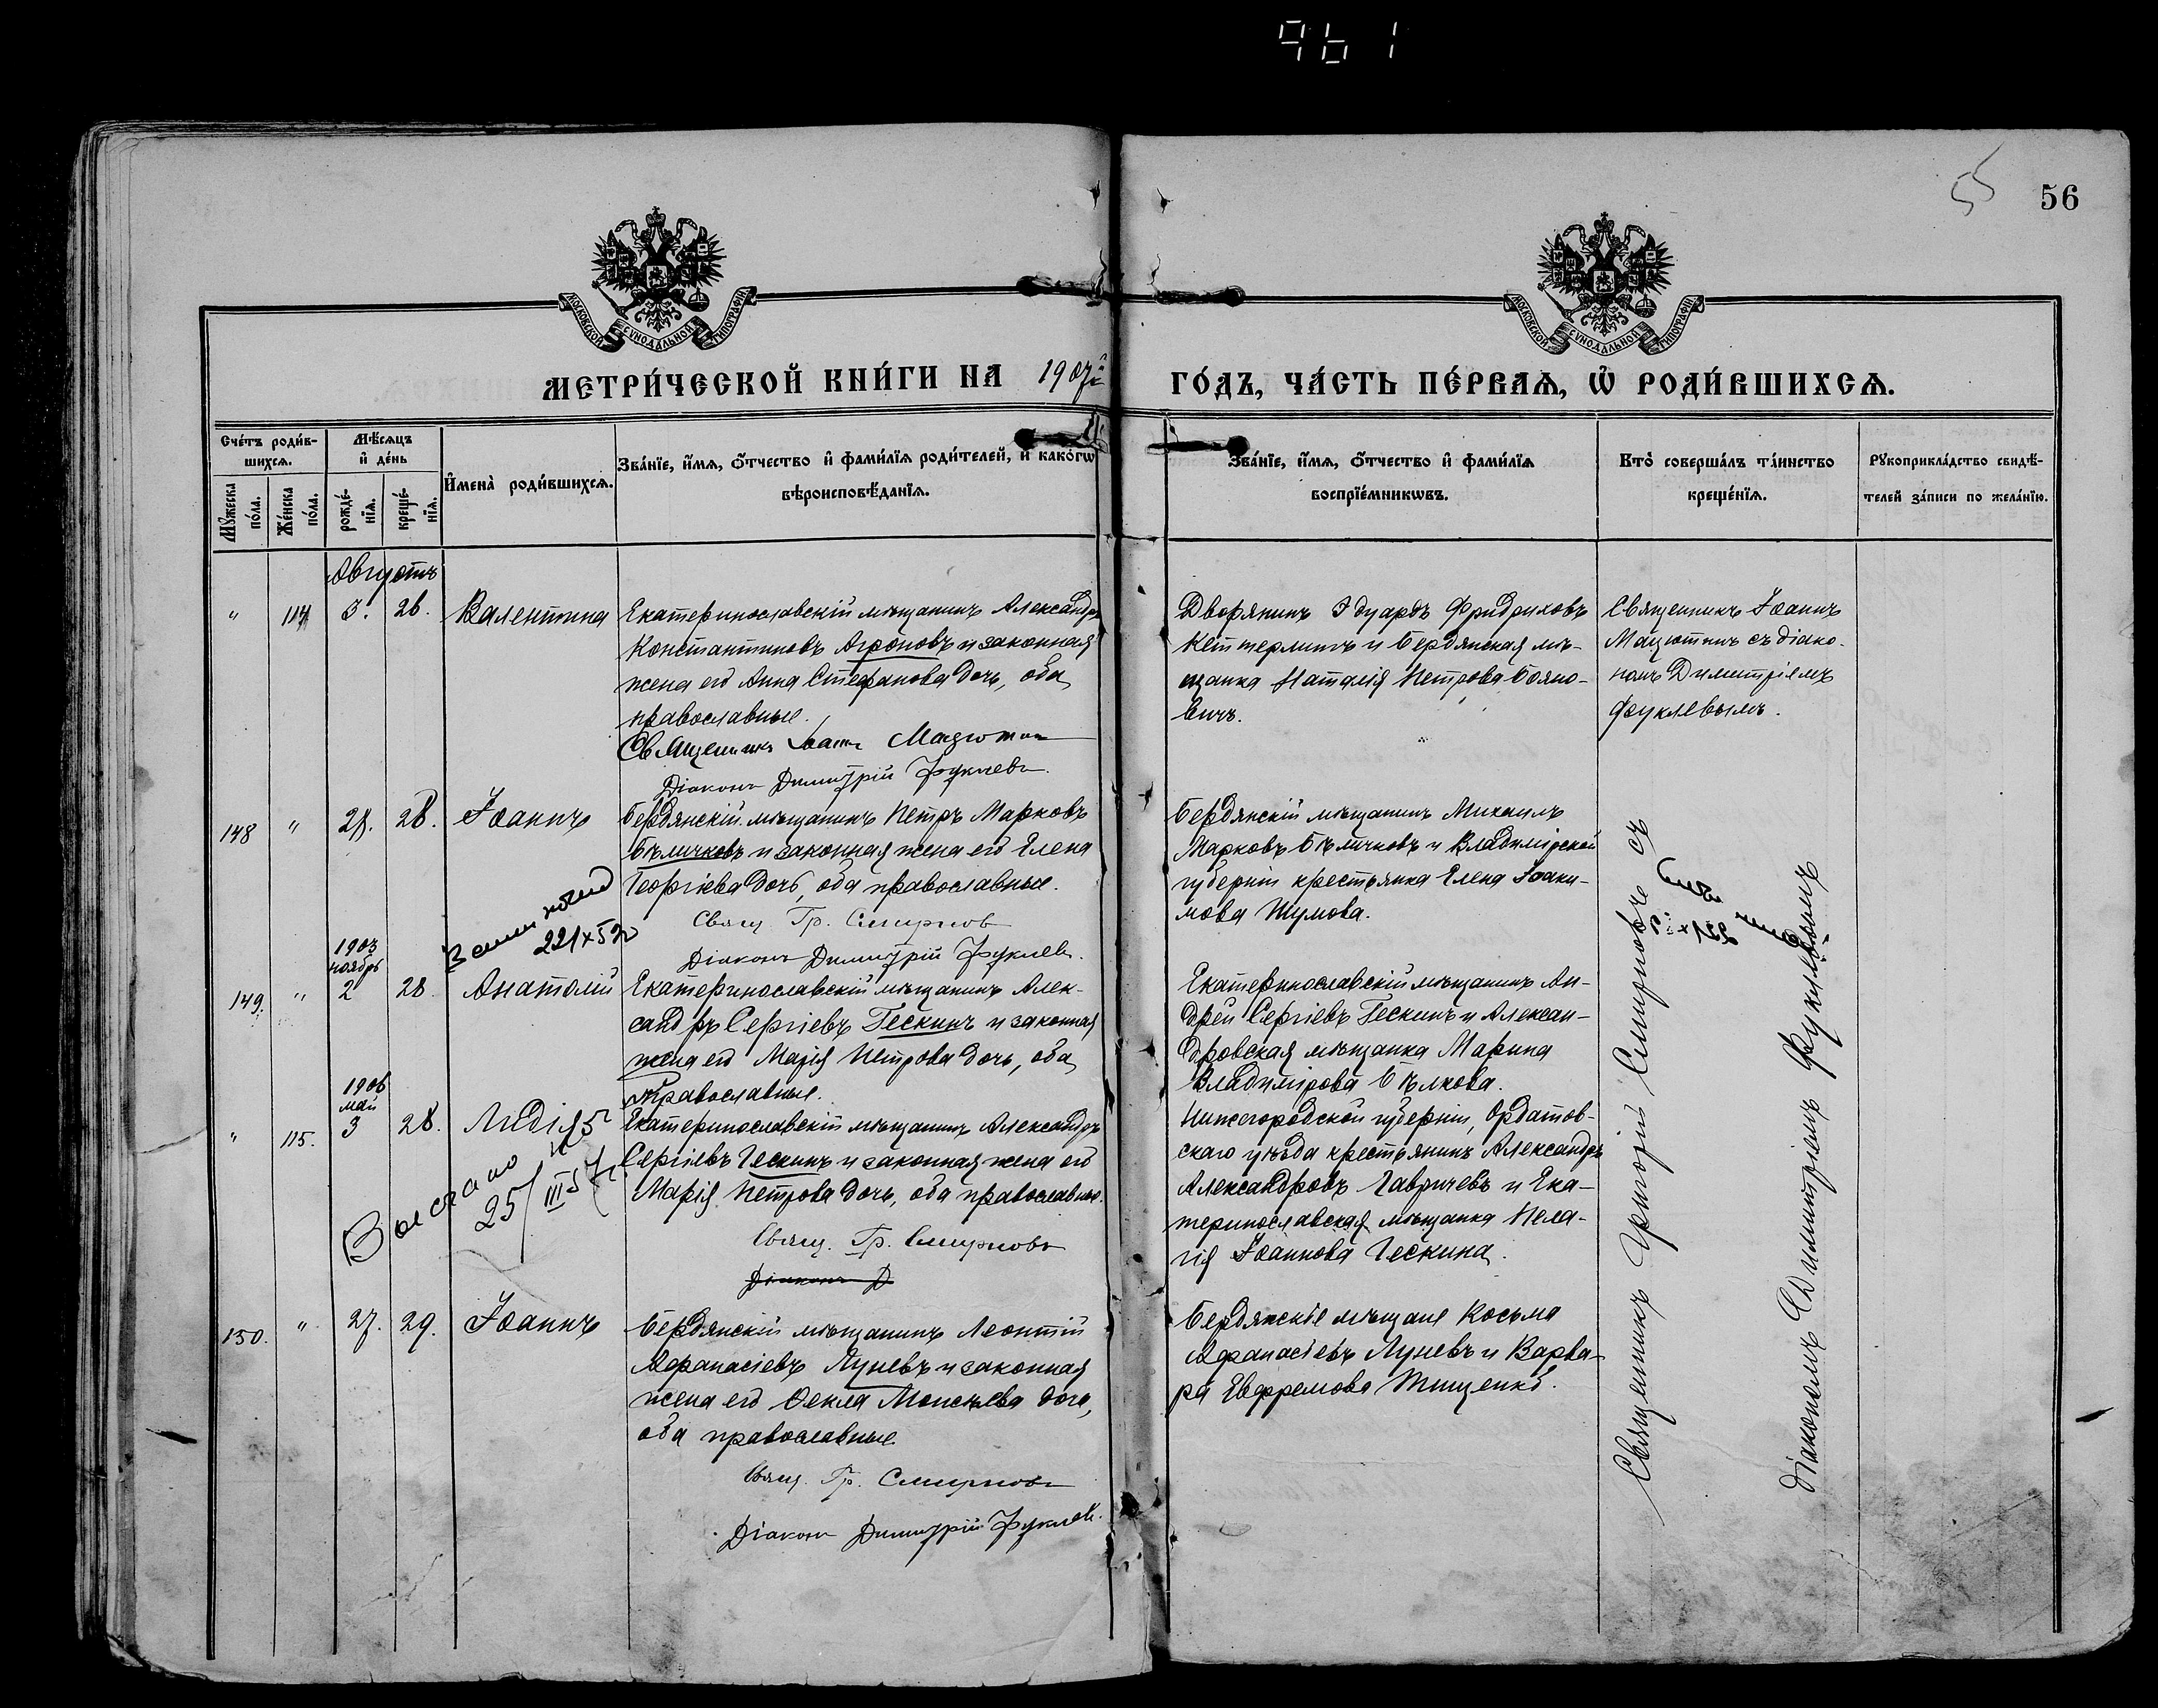 961
55
56
МОСКОВСКОЙ СУНОДАЛЬНОЙ ТИПОГРАФІИ
МОСКОВСКОЙ СУНОДАЛЬНОЙ ТИПОГРАФІИ
МЕТРИ́ЧЕСКОЙ КНИ́ГИ НА 1907й ГО́ДЪ, ЧА́СТЬ ПЕ́РВАѦ, Ѡ҆ РОДИ́ВШИХСѦ.
Сче́тъ роди́в-
шихсѧ.
Мѣ́сѧцъ
и҆ де́нь
Мꙋ́жеска по́ла.
Же́нска по́ла.
рожде́-
нїѧ.
креще́-
нїѧ.
И҆мена̀ роди́вшихсѧ.
Зва́нїе, и҆́мѧ, ѻ҆́тчество и҆ фами́лїѧ роди́телей, и҆ како́гѡ
вѣроисповѣ́данїѧ.
Зва́нїе, и҆́мѧ, ѻ҆́тчество и҆ фами́лїѧ
воспрїе́мникѡвъ.
Кто̀ соверша́лъ та́инство
креще́нїѧ.
Рꙋкоприкла́дство свидѣ́-
телей за́писи по жела́нїю.
Августъ
" 114 3. 26. Валентина
Екатеринославскій мѣщанинъ Александръ
Константиновъ Агроновъ и законная
жена его Анна Стефанова дочь, оба
православные.
Священникъ Іоаннъ Мазютин
Діаконъ Димитрій Фуклевъ.
Дворянинъ Эдуардъ Фридриховъ
Кеттерлингъ и Бердянская мѣ-
щанка Наталія Петрова Бояно-
вичъ.
Священникъ Іоаннъ
Мазютинъ съ діако-
номъ Димитріемъ
Фуклевымъ.
148 " 27. 28. Іоаннъ
Бердянскій мѣщанинъ Петръ Марковъ
Бѣличковъ и законная жена его Елена
Георгіева дочь, оба православные.
Свящ. Гр. Смирнов
Діаконъ Димитрій Фуклевъ.
Бердянскій мѣщанинъ Михаилъ
Марковъ Бѣличковъ и Владимірской
губерніи крестьянка Елена Іоаки-
мова Шумова.
1903
ноябрь
149. " 2 28 Анатолій
Екатеринославскій мѣщанинъ Алек-
сандръ Сергіевъ Гескинъ и законная
жена его Марія Петрова дочь, оба
православные.
Екатеринославскій мѣщанинъ Ан-
дрей Сергіевъ Гескинъ и Алексан-
дровская мѣщанка Марина
Владимірова Бѣлкова.
1906
май
" 115. 3 28. Лидія
25/III 57
Екатеринославскій мѣщанинъ Александръ
Сергіевъ Гескинъ и законная жена его
Марія Петрова дочь, оба православные.
Свящ. Гр. Смирновъ
Діаконъ Д
Нижегородской губерніи, Ордатов-
скаго уѣзда крестьянинъ Александръ
Александровъ Гавричевъ и Ека-
теринославская мѣщанка Пела-
гія Іоаннова Гескина.
150. " 27. 29. Іоаннъ
Бердянскій мѣщанинъ Леонтій
Афанасіевъ Луневъ и законная
жена его Ѳекла Моисѣева дочь,
оба православные.
Свящ. Гр. Смирновъ
Діаконъ Димитрій Фуклевъ.
Бердянскіе мѣщане Косьма
Афанасіевъ Луневъ и Варва-
ра Евфремова Тищенко.
Священникъ Григорій Смирновъ съ
діакономъ Димитріемъ Фуклевымъ